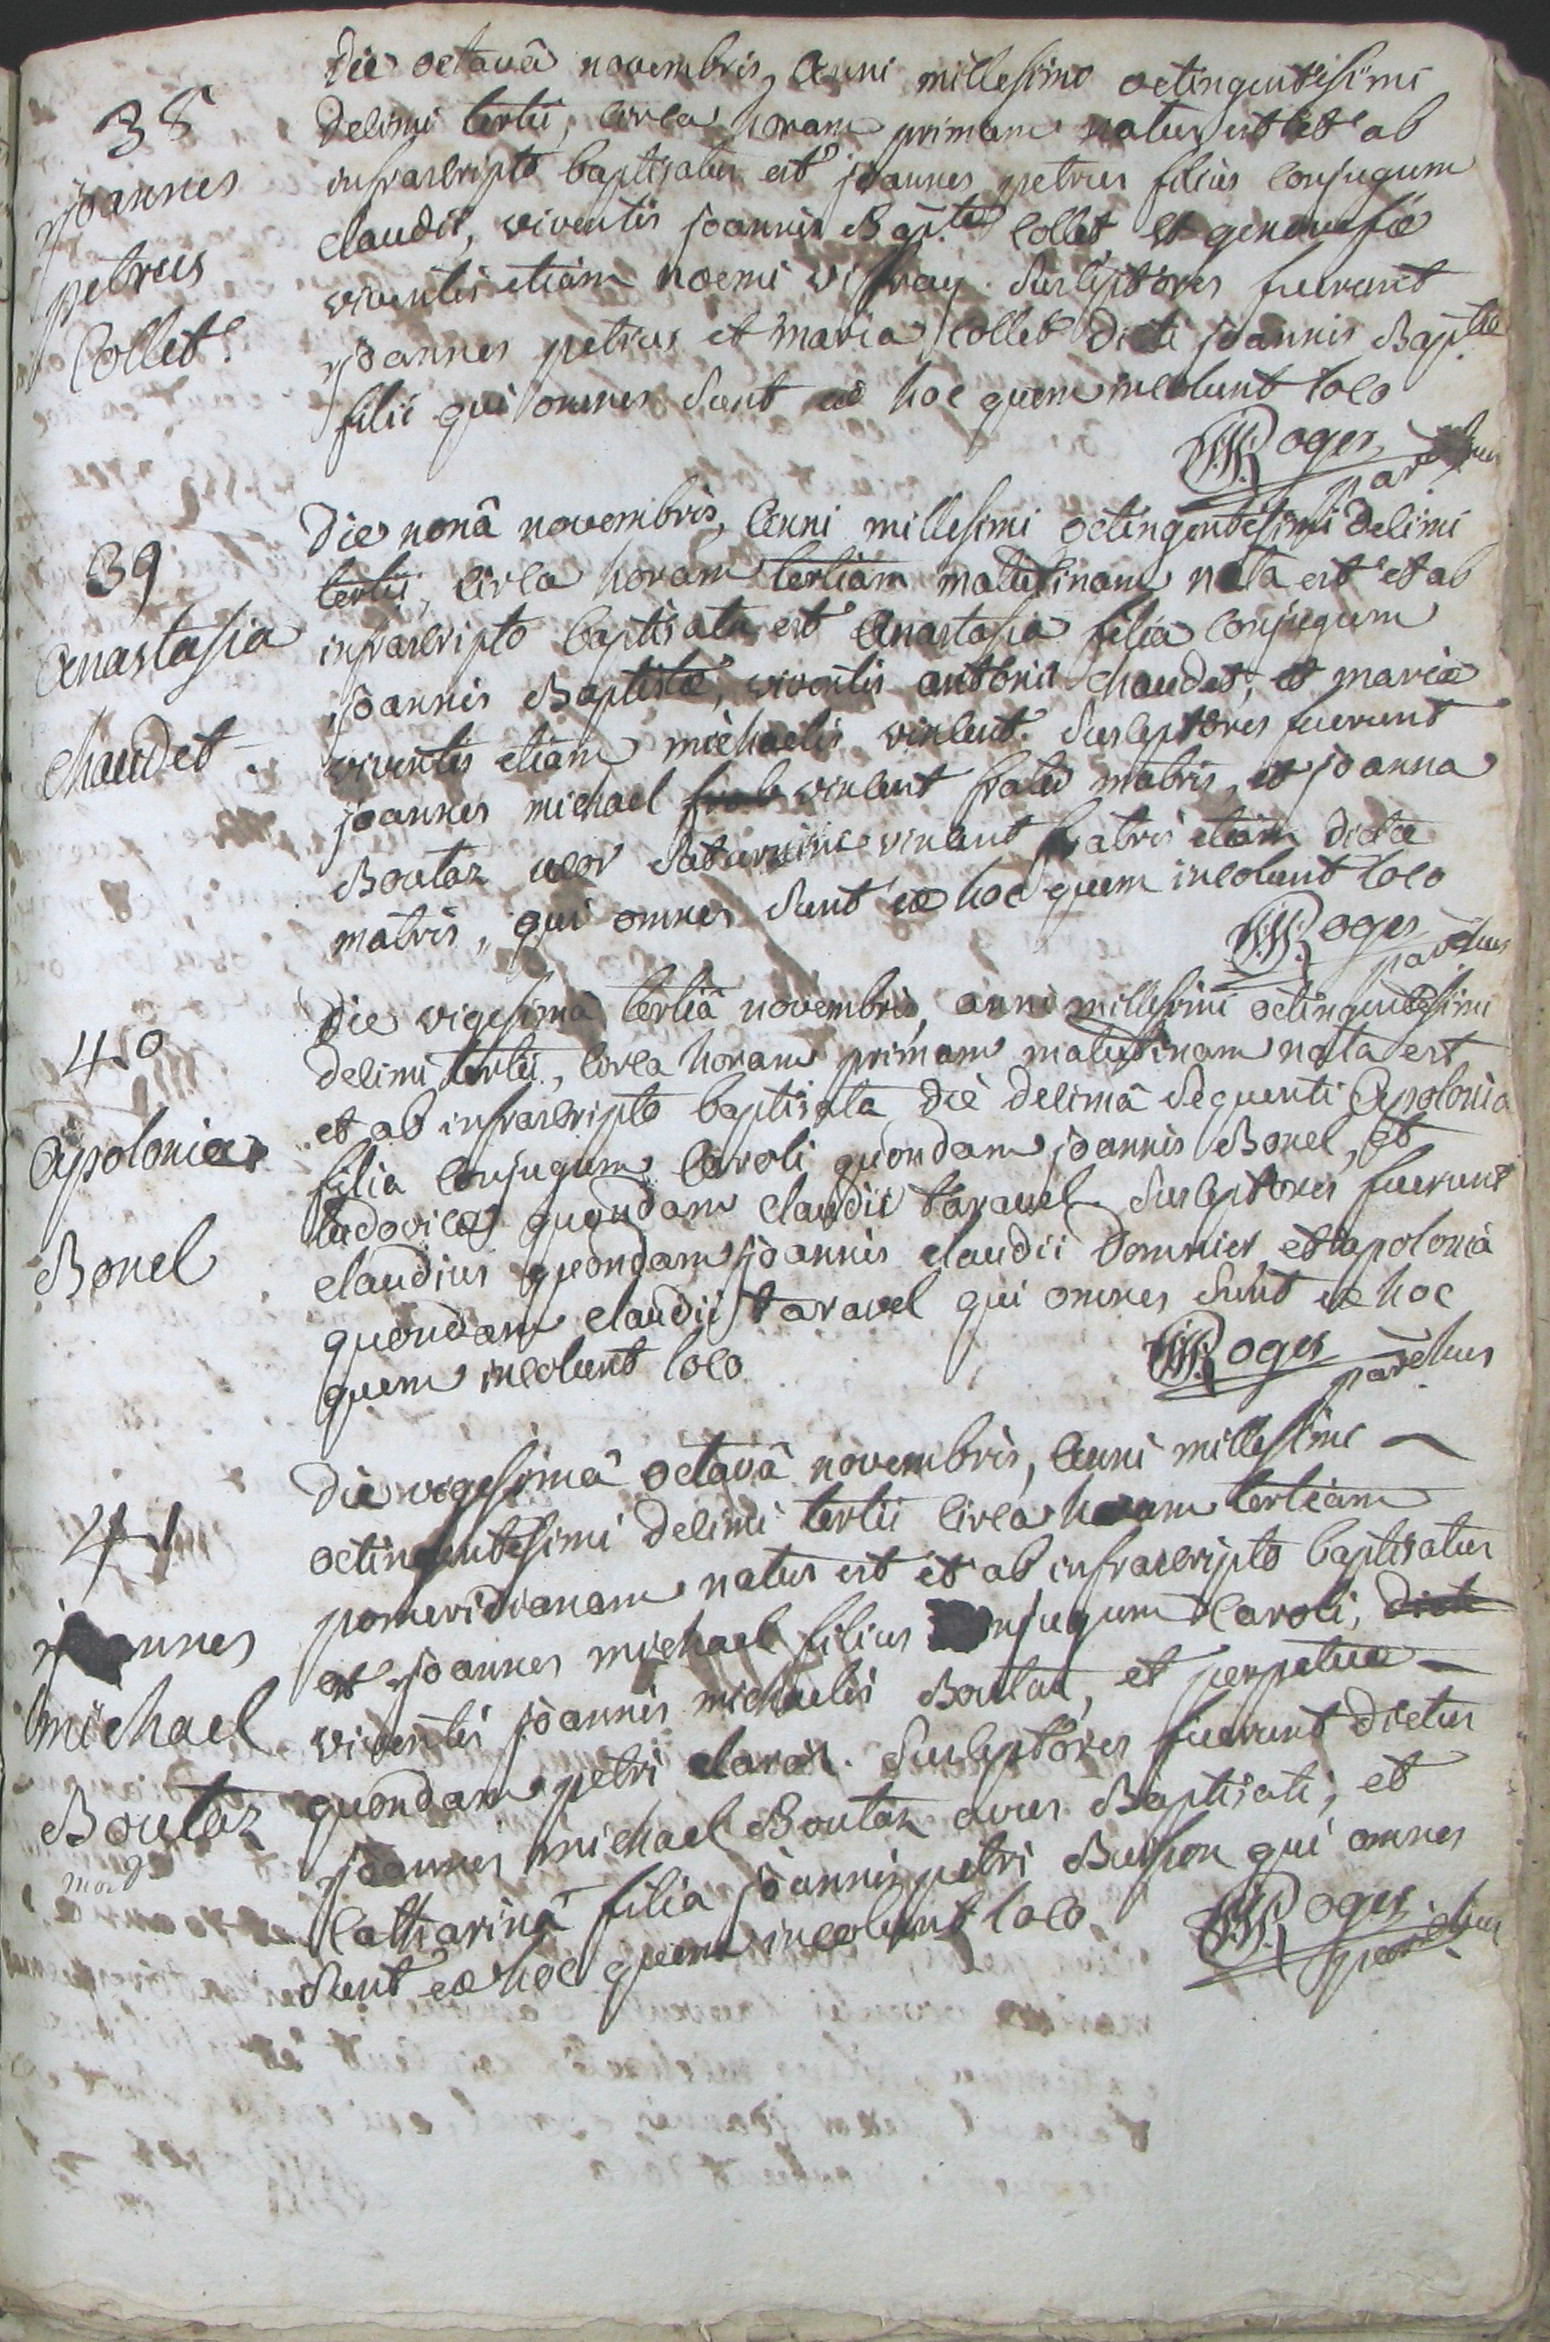 38
joannes
petrus
Collet
Die octavâ novembris, anni millesimo octingentesimi
decimi tertii, circa horam primam natus est et ab
infrascripto baptisatus est joannes petrus filius conjugum
claudii, viventis joannis Bap.tæ Collet, et genovefæ
viventis etiam noemi viffray. Susceptores fuerunt
joannes petrus et maria Collet dicti joannis Bap.tæ
filii qui omnes sunt ex hoc quem incolunt loco
Roger parochus
39
anastasia
chaudet
Die nonâ novembris, anni millesimi octingentesimi decimi
tertii, circa horam tertiam matutinam nata est et ab
infrascripto baptisata est anastasia filia conjugum
joannis Baptistæ, viventis antonii chaudet, et mariæ
viventis etiam michaelis vincent. Susceptores fuerunt
joannes michael vincent frater matris, et joanna
Boutaz uxor Saturnini vincent fratris etiam dictæ
matris, qui omnes sunt ex hoc quem incolunt loco
Roger parochus
40
apolonia
Bonel
Die vigesimâ tertiâ novembris, anni millesimi octingentesimi
decimi tertii, circa horam primam matutinam nata est
et ab infrascripto baptisata die decimâ sequenti apolonia
filia conjugum Caroli quondam joannis Bonel, et
ludovicæ quondam claudii taravel. Susceptores fuerunt
claudius quondam joannis claudii Domnier, et apolonia
quondam claudii taravel qui omnes sunt ex hoc
quem incolunt loco
Roger parochus
41
joannes
michael
Boutaz
mort
Die vigesimâ octavâ novembris, anni millesimi
octingentesimi decimi tertii circa horam tertiam
pomeridianam natus est et ab infrascripto baptisatus
est joannes michael filius conjugum Caroli, dicti
viventis joannis michaelis Boutaz, et perpetuæ
quondam petri claraz. Susceptores fuerunt dictus
joannes michael Boutaz avus Baptisati, et
Catharina filia joannis petri Buisson qui omnes
sunt ex hoc quem incolunt loco
Roger parochus